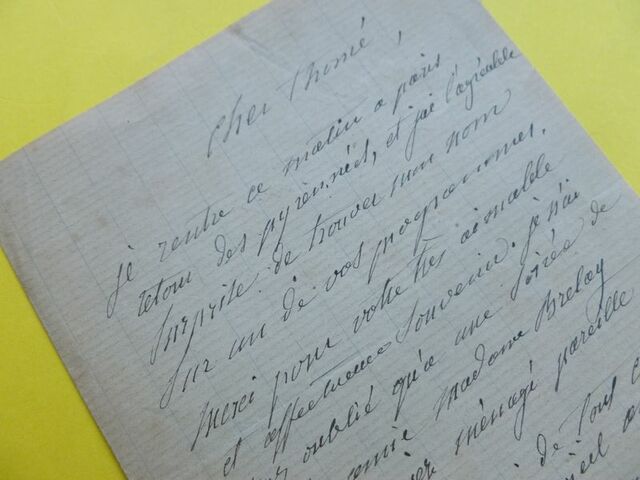 Cher Thomé,
je rentre ce matin a paris
retour des pyrennées, et jai l'agréable
surprise de trouver mon nom
sur un de vos programmes.
Merci pour votre très aimable
et affectueux souvenir. je n'ai
oublié qu'a une soirée de
madame Breloy
ménagé pareille
de tout